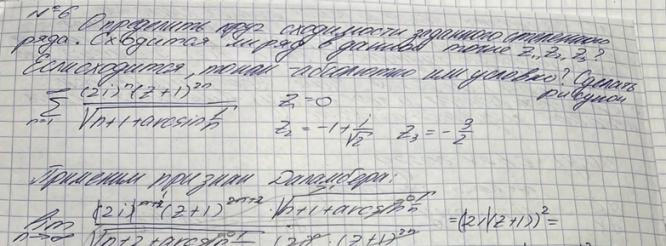 №6
Определить круг сходимости заданного степенного
ряда. Сходится ли ряд в данной точке z₁, z₂, z₃?
Если сходится, то как - абсолютно или условно? Сделать
рисунок
∑ n=1 ∞ (2i)ⁿ(z+1)²ⁿ / √n+1+arcsin 1/n z₁=0
z₂ = -1+ i/√2 z₃ = - 3/2
Применим признак Даламбера:
lim n→∞ (2i)ⁿ⁺¹(z+1)²ⁿ⁺² · √n+1+arcsin 1/n =(2i)(z+1)²=
√n+2+arcsin (2i)ⁿ · (z+1)²ⁿ